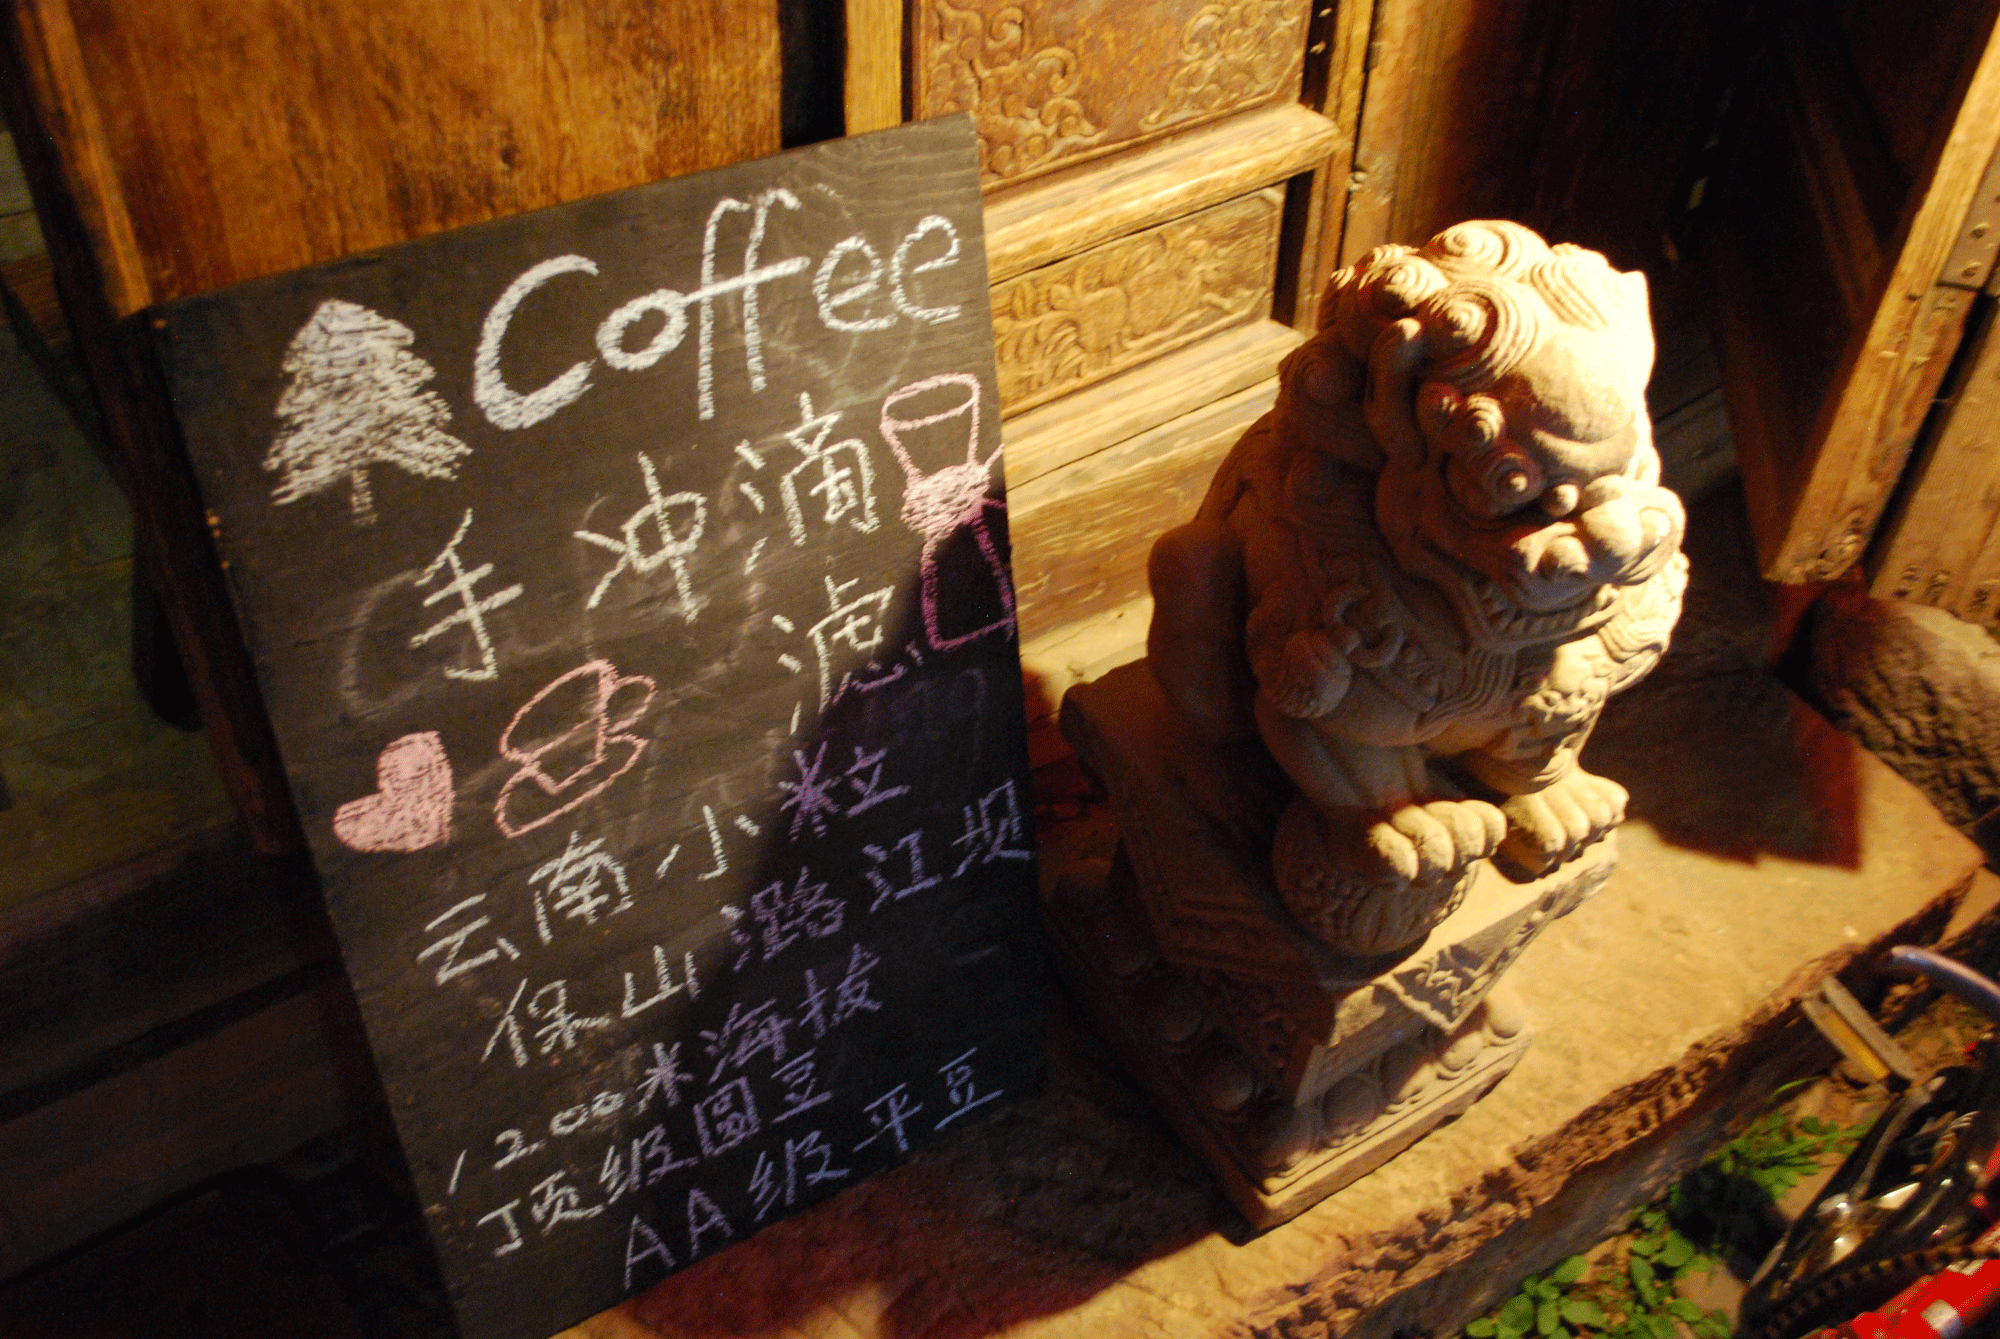 Coffee
手冲滴
滤
云南小粒
保山潞江坝
1200米海拔
顶级圆豆
AA级平豆